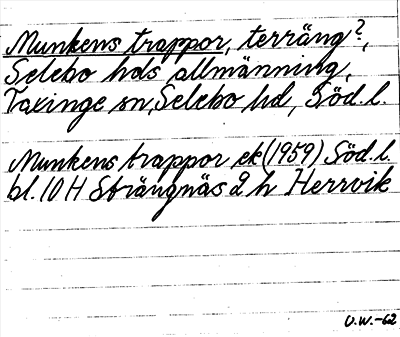 Munkens trappor, terräng?,
Selebo hds allmänning,
Taxinge sn, Selebo hd, Söd. l.
Munkens trappor ek (1959) Söd. l.
bl. 10 H Strängnäs 2 h Herrvik
U.W.-62